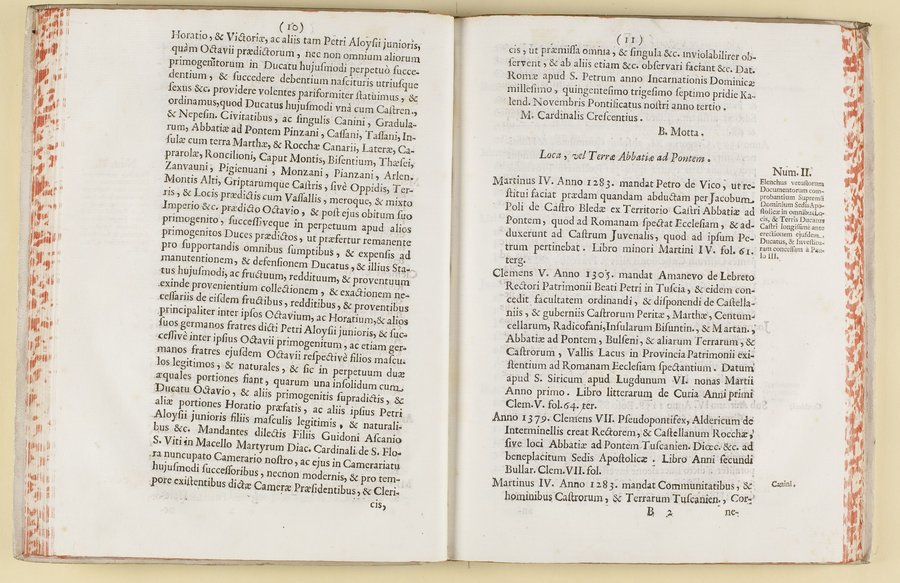 (10)
Horatio, & Victoriæ, ac aliis tam Petri Aloysii junioris,
quàm Octavii prædictorum, nec non omnium aliorum
primogenitorum in Ducatu hujusmodi perpetuò succe-
dentium, & succedere debentium nascituris utriusque
sexus &c. providere volentes pariformiter statuimus, &
ordinamus,quod Ducatus hujusmodi vnà cum Castren.,
& Nepesin. Civitatibus, ac singulis Canini, Gradula-
rum, Abbatiæ ad Pontem Pinzani, Cassani, Tassani, In-
sulæ cum terra Marthæ, & Rocchæ Canarii, Lateræ, Ca-
prarolæ, Roncilioni, Caput Montis, Bisentium, Thæsei,
Zanvauni, Pigienuani, Monzani, Pianzani, Arlen.
Montis Alti, Griptarumque Castris, sivè Oppidis, Ter-
ris, & Locis prædictis cum Vassallis, meroque, & mixto
Imperio &c. prædicto Octavio, & post ejus obitum suo
primogenito, successiveque in perpetuum apud alios
primogenitos Duces prædictos, ut præfertur remanente
pro supportandis omnibus sumptibus, & expensis ad
manutentionem, & defensionem Ducatus, & illius Sta-
tus hujusmodi, ac fructuum, reddituum, & proventuum
exinde provenientium collectionem, & exactionem ne-
cessariis de eisdem fructibus, redditibus, & proventibus
principaliter inter ipsos Octavium, ac Horatium,& alios
suos germanos fratres dicti Petri Aloysii junioris, & suc-
cessivè inter ipsius Octavii primogenitum, ac etiam ger-
manos fratres ejusdem Octavii respectivè filios mascu-
los legitimos, & naturales, & sic in perpetuum duæ
æquales portiones fiant, quarum una insolidum cum
Ducatu Octavio, & aliis primogenitis supradictis, &
aliæ portiones Horatio præfatis, ac aliis ipsius Petri
Aloysii junioris filiis masculis legitimis, & naturali-
bus &c. Mandantes dilectis Filiis Guidoni Ascanio
S. Viti in Macello Martyrum Diac. Cardinali de S. Flo-
ra nuncupato Camerario nostro, ac ejus in Camerariatu
hujusmodi successoribus, necnon modernis, & pro tem-
pore existentibus dictæ Cameræ Præsidentibus, & Cleri-
cis,
(11)
cis, ut præmissa omnia, & singula &c. inviolabilirer ob-
servent, & ab aliis etiam &c. observari faciant &c. Dat.
Romæ apud S. Petrum anno Incarnationis Dominicæ
millesimo, quingentesimo trigesimo septimo pridie Ka-
lend. Novembris Pontificatus nostri anno tertio.
M. Cardinalis Crescentius.
B. Motta.
Loca, vel Terræ Abbatiæ ad Pontem.
Num. II.
Elenchus vetustorum
Documentorum com-
probantium Supremū
Dominium Sedis Apo-
stolicæ in omnibus Lo-
cis, & Terris Ducatus
Castri longissimè ante
erectionem ejusdem
Ducatus, & Investitu-
ram concessam à Pau-
lo III.
Martinus IV. Anno 1283. mandat Petro de Vico, ut re-
stitui faciat prædam quandam abductam per Jacobum
Poli de Castro Bledæ ex Territorio Castri Abbatiæ ad
Pontem, quod ad Romanam spectat Ecclesiam, & ad-
duxerunt ad Castrum Juvenalis, quod ad ipsum Pe-
trum pertinebat. Libro minori Martini IV. fol. 61.
terg.
Clemens V. Anno 1305. mandat Amanevo de Lebreto
Rectori Patrimonii Beati Petri in Tuscia, & eidem con-
cedit facultatem ordinandi, & disponendi de Castella-
niis, & guberniis Castrorum Peritæ, Marthæ, Centum-
cellarum, Radicofani,Insularum Bisuntin., & Martan.,
Abbatiæ ad Pontem, Bulseni, & aliarum Terrarum, &
Castrorum, Vallis Lacus in Provincia Patrimonii exi-
stentium ad Romanam Ecclesiam spectantium. Datum
apud S. Siricum apud Lugdunum VI. nonas Martii
Anno primo. Libro litterarum de Curia Anni primi
Clem.V. fol.64. ter.
Anno 1379. Clemens VII. Pseudopontifex, Aldericum de
Interminellis creat Rectorem, & Castellanum Rocchæ,
sive loci Abbatiæ ad Pontem Tuscanien. Diœc. &c. ad
beneplacitum Sedis Apostolicæ. Libro Anni secundi
Bullar. Clem.VII. fol.
Martinus IV. Anno 1283. mandat Communitatibus, &
Canini.
hominibus Castrorum, & Terrarum Tuscanien., Cor-
B 2
ne-